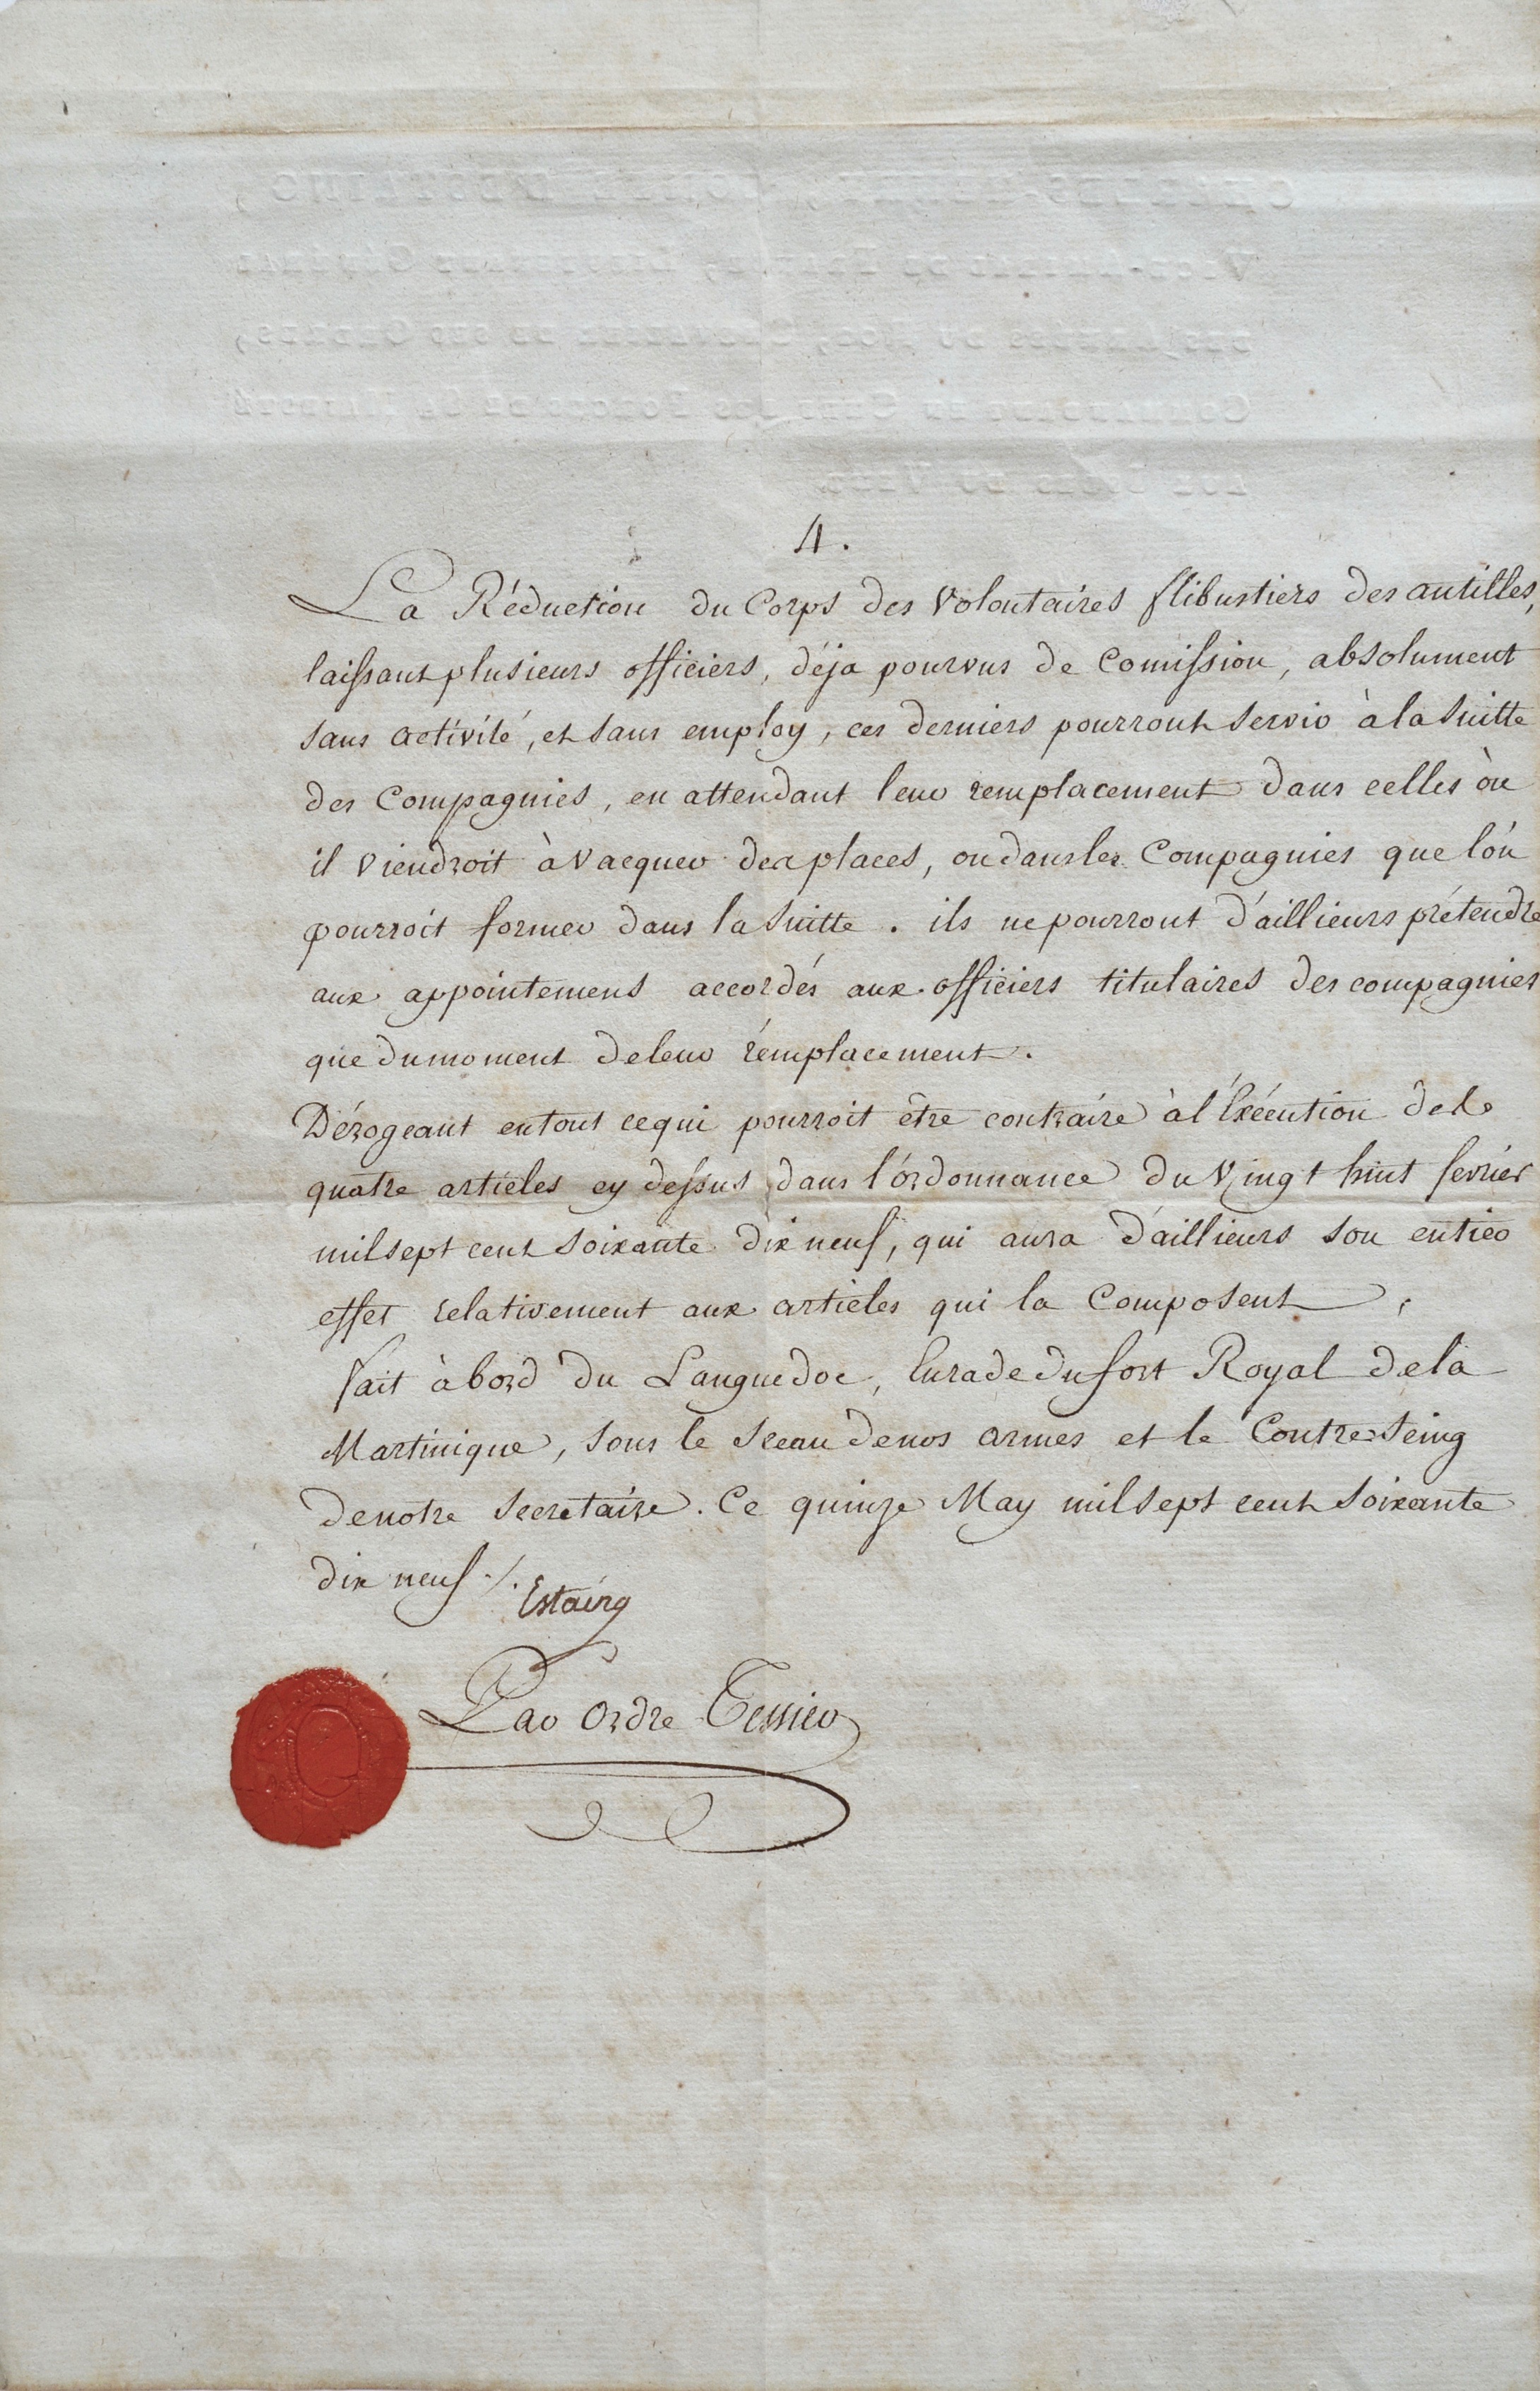 4.
La Réduction du Corps des Volontaires flibustiers des antilles,
laissant plusieurs officiers, déja pourvus de Comission, absolument
sans activité, et sans employ, ces derniers pourront servir à la Suitte
des Compagnies, en attendant leur remplacement dans celles òu
il viendroit à vacquer des places, ou dans les Compagnies que l'ón
pourroit former dans la Suitte. ils ne pourront d'aillieurs prétendre
aux appointemens accordés aux officiers titulaires des compagnies
que du moment de leur rémplacement.
Dérogeant en tout ce qui pourroit être contraire à l'Éxécution des
quatre articles cy dessus dans l'órdonnance du Vingt huit fevrier
mil sept cent soixante dix neuf, qui aura d'aillieurs son entier
effet relativement aux articles qui la Composent,
fait à bord du Languedoc, En rade du fort Royal de la
Martinique, sous le Sceau de nos armes et le Contre-Seing
de notre Secretaire. Ce quinze May mil sept cent Soixante
dix neuf ./.
Estaing
Par Ordre Tessier